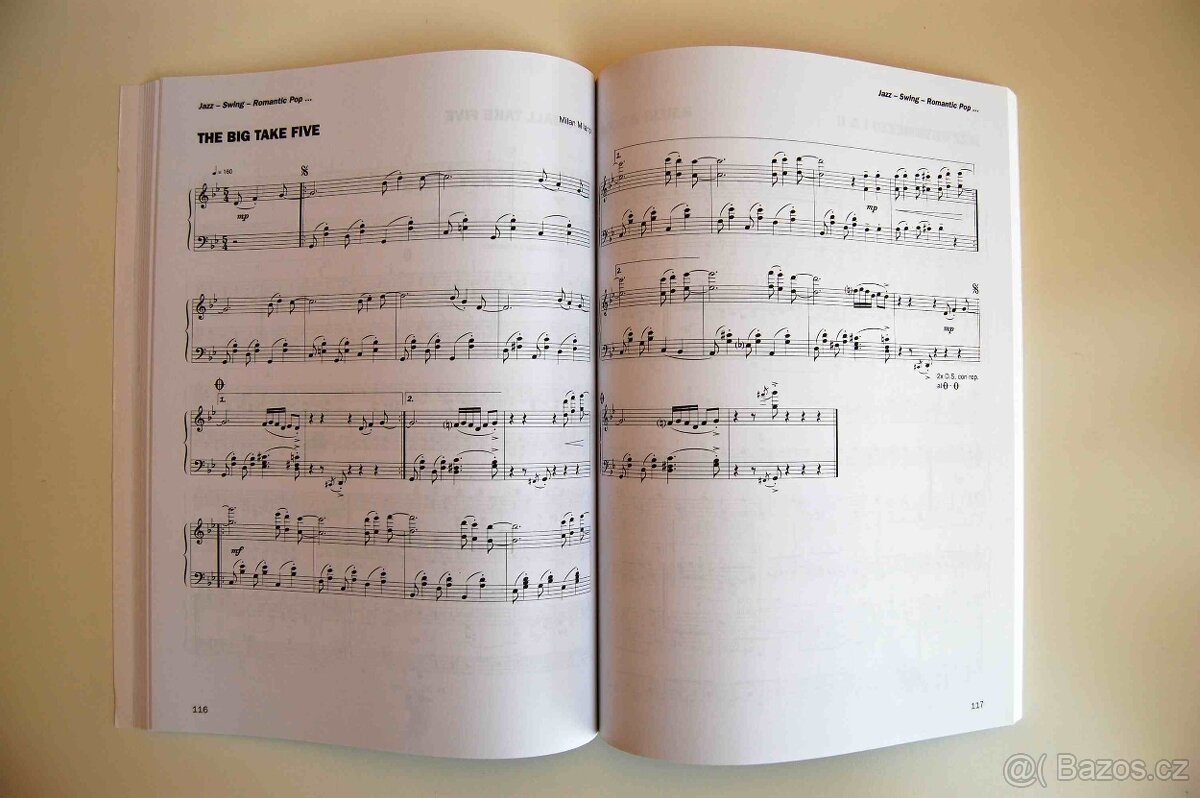 Jazz – Swing – Romantic Pop ...
THE BIG TAKE FIVE
Milan
♩ = 180
mp
1.
2.
mf
116
Jazz – Swing – Romantic Pop ...
1.
mp
2.
mp
2x D.S. con rep.
al
117
@( Bazos.cz